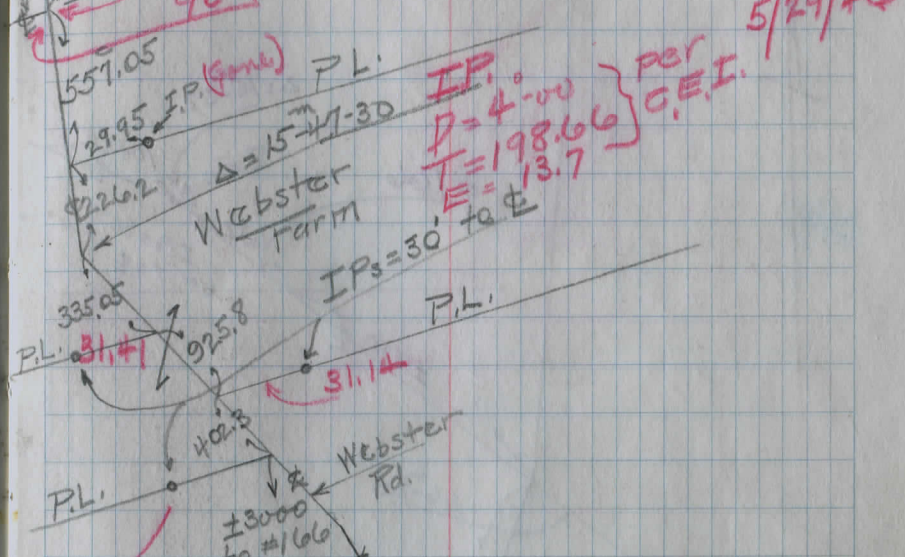 5/29/
557.05
I.P. (Gone)
P.L.
29.95
Δ = 15-47-30
I.P.
D = 4°-00
T = 198.66
E = 13.7
per
C.E.I.
226.2
Webster
Farm
IPs = 30' to ℄
335.05
925.8
P.L.
P.L.
31.41
31.14
402.3
Webster
Rd.
P.L.
℄
±3000
to #166